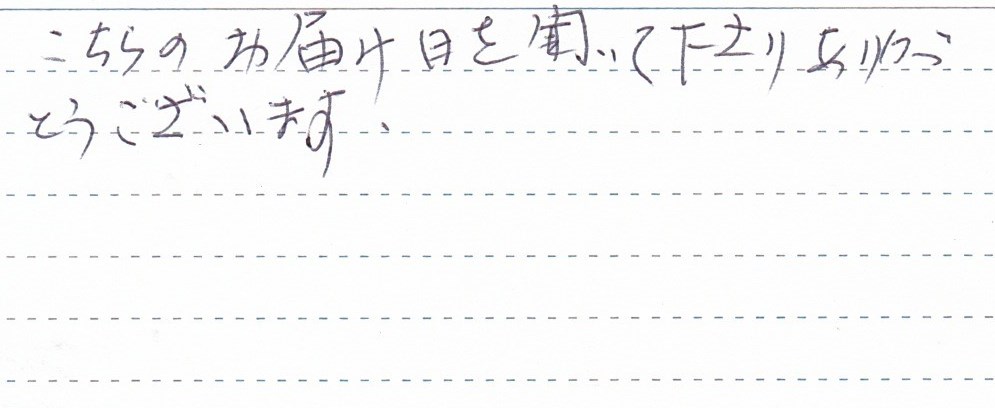 こちらのお届け日を聞いて下さりありが
とうございます、